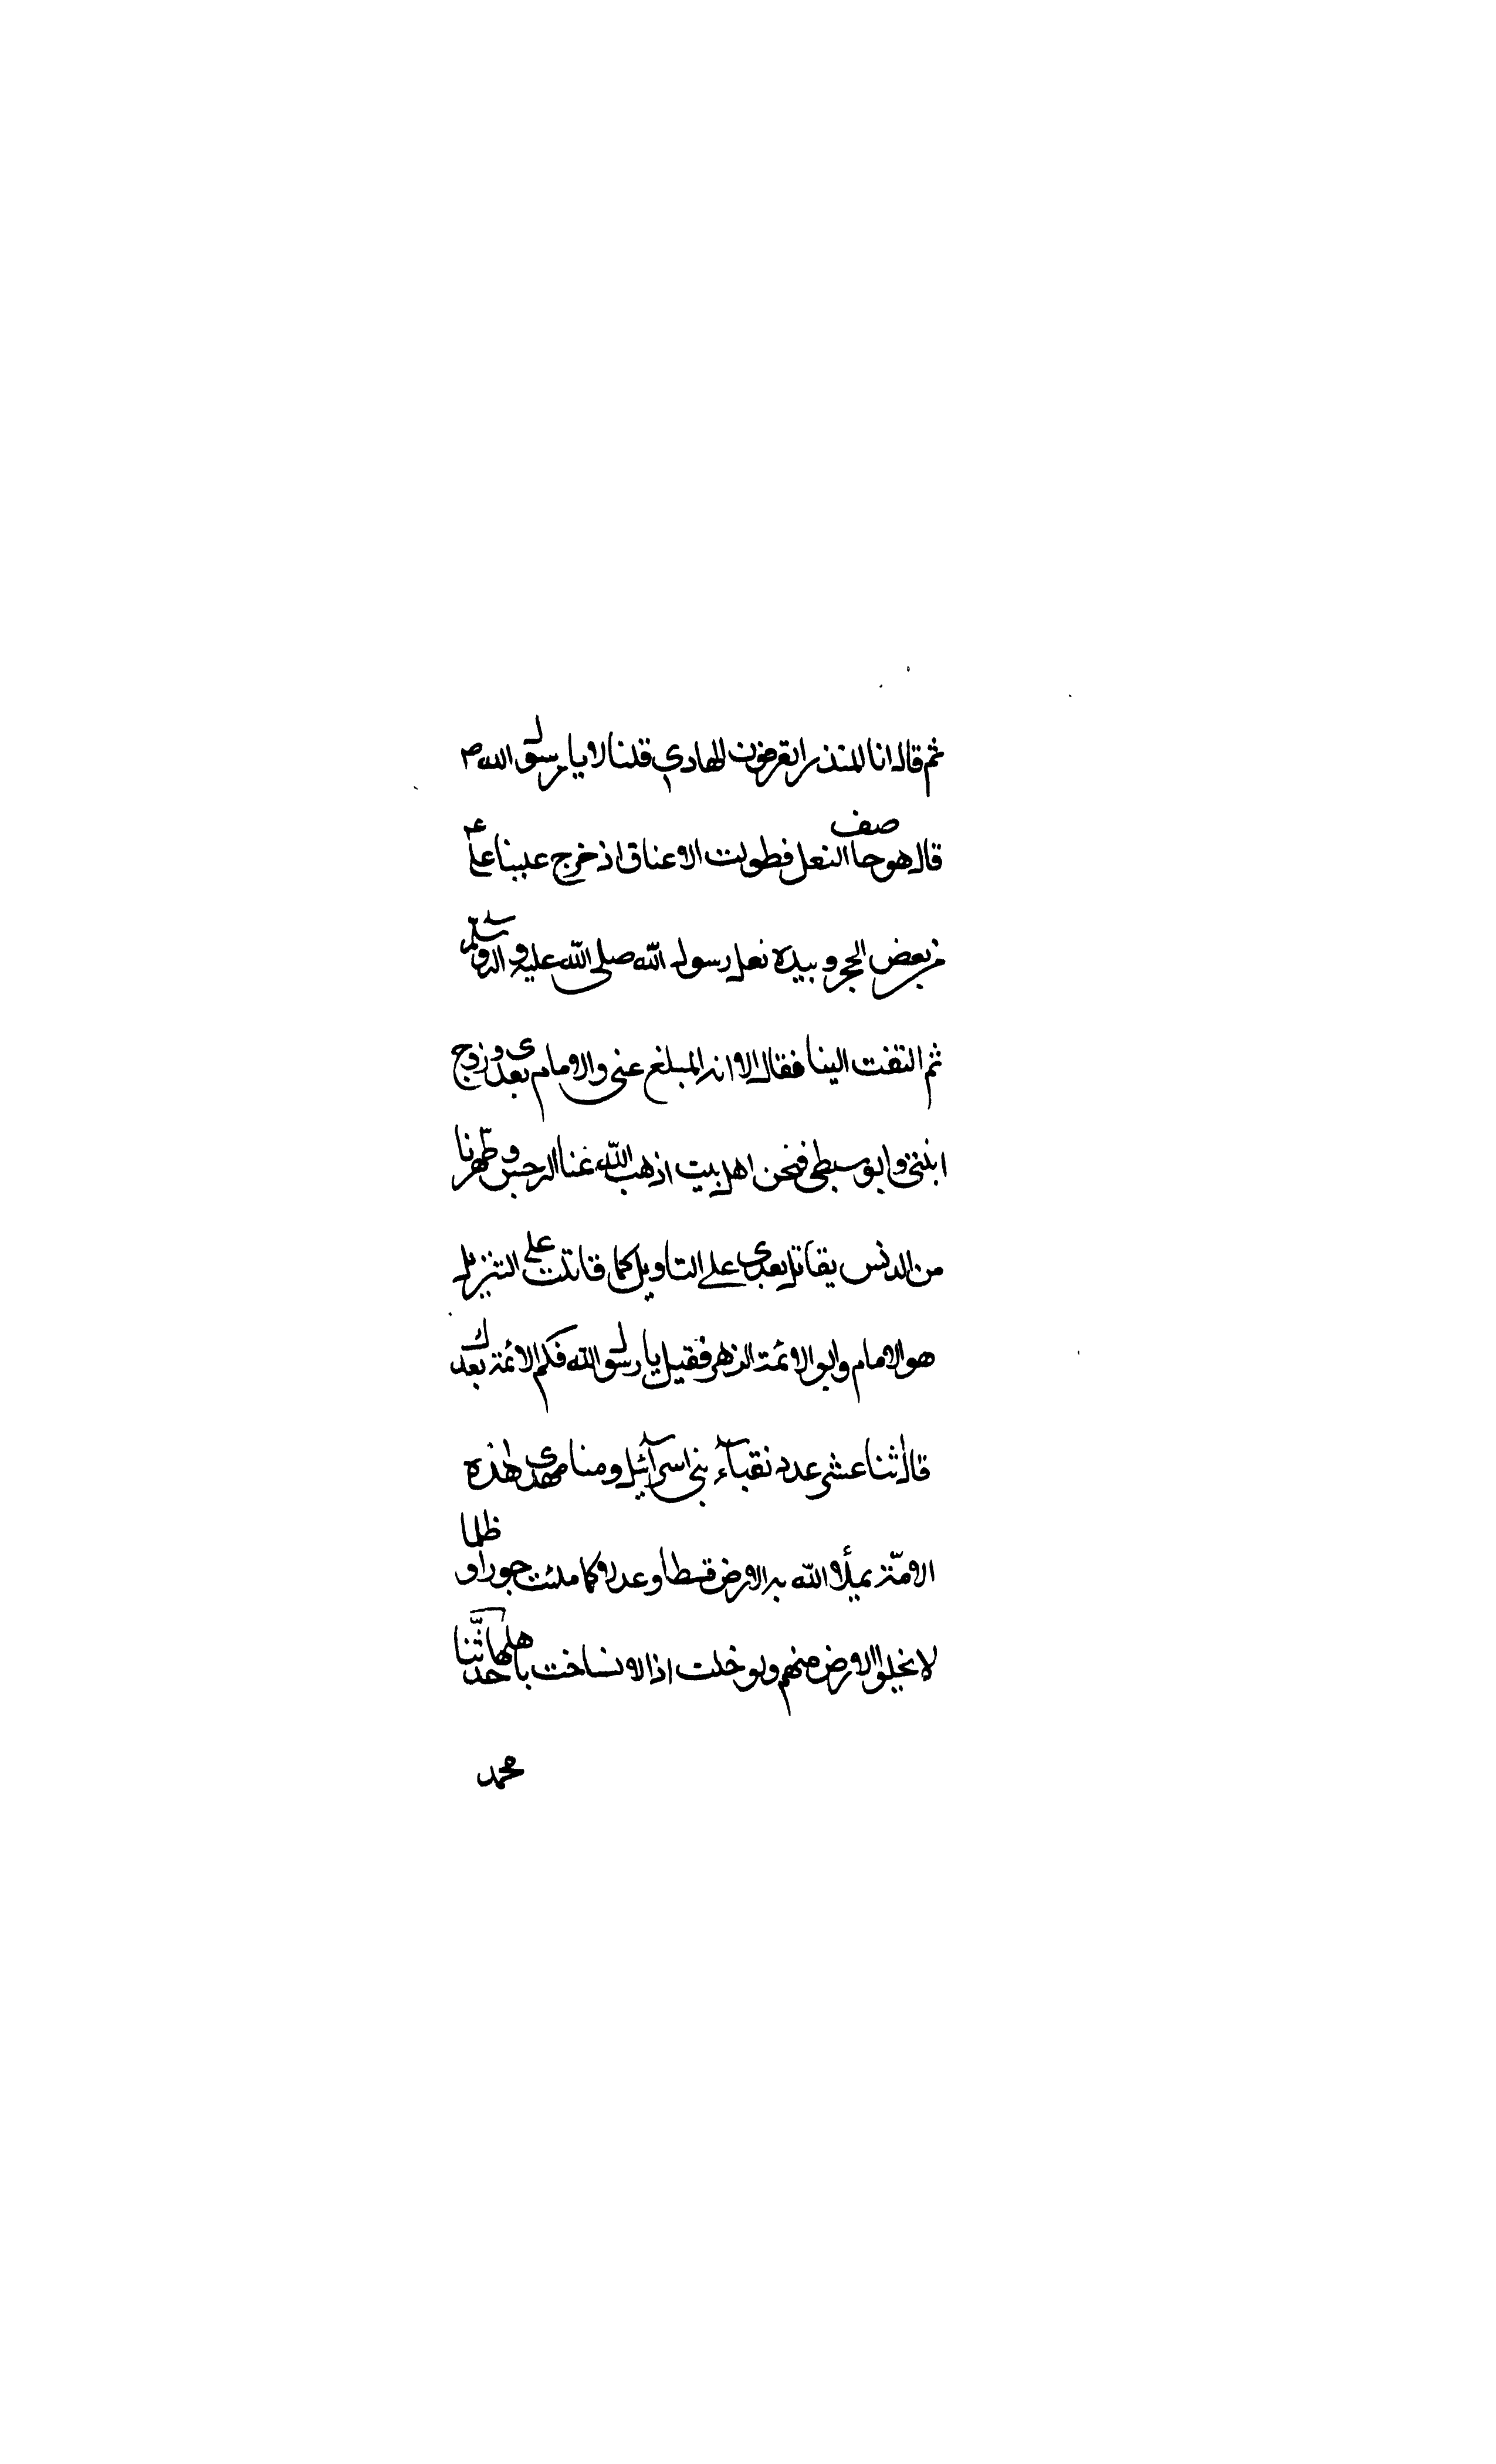 ثم قال انا المنذر اتعرفون الهادي قلنا لا يا رسول الله ص
قال هو خاصف النعل فطولت الاعناق اذ خرج علينا علي ع
من بعض الحجر وبيده نعل رسول الله صلى الله عليه واله وسلم
ثم التفت الينا فقال الا انه المبلغ عني والامام بعدي وزوج
ابنتي وابو سبطي فنحن اهل بيت اذهب الله عنا الرجس وطهرنا
من الدنس يقاتل بعدي على التاويل كما قاتلت على التنزيل
هو الامام وابو الائمة الزهر فقيل يا رسول الله فكم الائمة بعدك
قال اثنا عشر عدد نقبآء بني اسرآئيل ومنا مهدي هذه
الامّة يملأ الله به الارض قسطا وعدلا كما ملئت جورا و ظلما
لا يخلو الارض منهم ولو خلت اذا لانساخت باهلها حدثنا
محمد